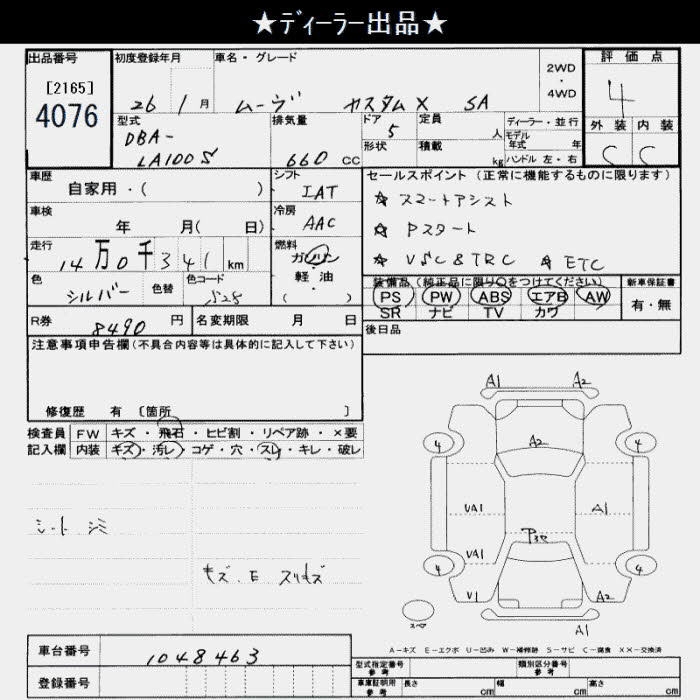 ★ディーラー出品★
出品番号 初度登録年月 車名・グレード 2WD・4WD 評価点
[2165]
4076
26 1月 ムーヴ カスタム X SA 4
型式 排気量 ドア 定員 人 ディーラー・並行 外装 内装
DBA- 5 モデル年式 年
LA100S 660 CC 形状 積載 kg ハンドル 左・右 C C
車歴 シフト セールスポイント (正常に機能するものに限ります)
自家用・( ) IAT ☆ スマートアシスト
車検 冷房 ☆ Pスタート
年 月( 日) AAC
走行 燃料 ☆ VSC & TRC ☆ ETC
14万0千341km ガソリン・
色 色替 色コード 軽油 装備品(純正品に限り○をつけてください) 新車保証書
シルバー S28 ( ) PS PW ABS エアB AW 有・無
SR ナビ TV カワ
R券 8490円 名変期限 月 日 後日品
注意事項申告欄(不具合内容等は具体的に記入して下さい)
修復歴 有 [箇所 ]
検査員 FW キズ・飛石・ヒビ割・リペア跡・×要
記入欄 内装 キズ・汚レ・コゲ・穴・スレ・キレ・破レ
シート シミ
キズ.E スリキズ
A1 A2
4 A2 4
UA1 A1
UA1
4 4
U1 A2
スペア A1
A-キズ E-エクボ U-凹み W-補修跡 S-サビ C-腐食 XX-交換済
車台番号 1048463
型式指定番号 参考 類別区分番号 参考
登録番号
車庫証明用 参考 長さ cm 幅 cm 高さ cm